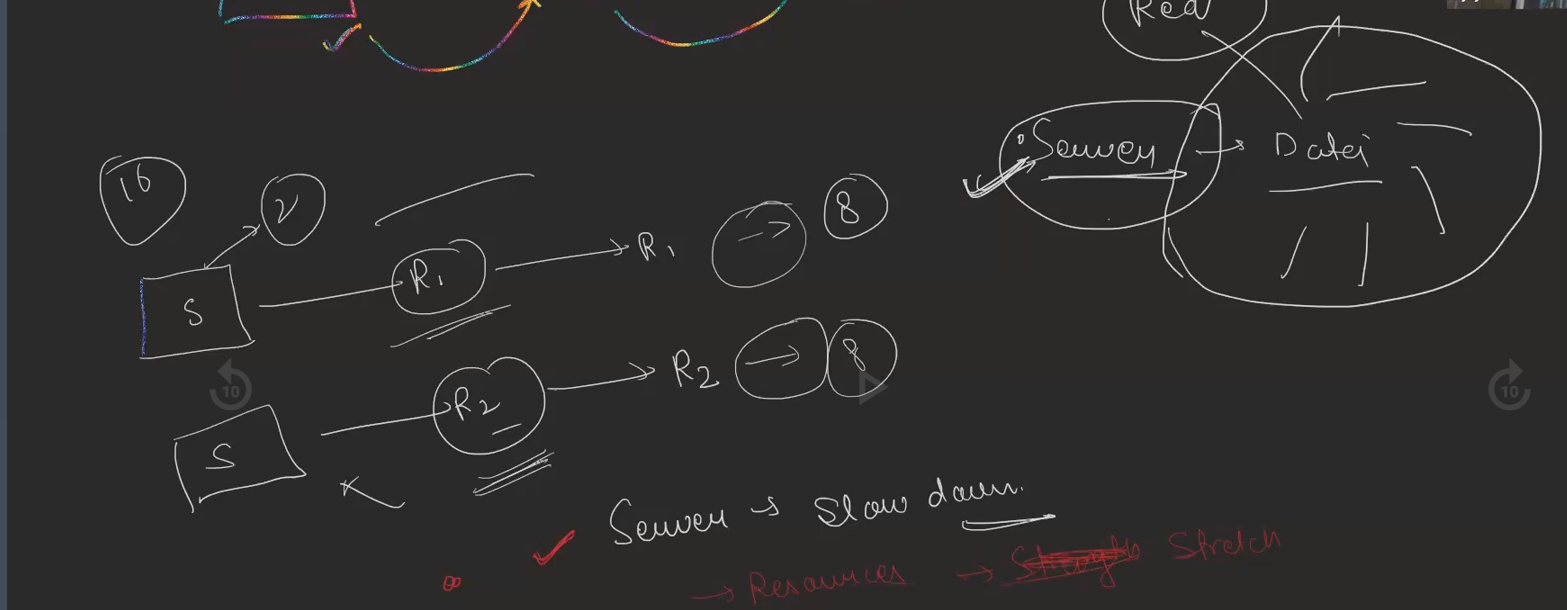 Red
Server → Data
16
2
8
S → R1 → R1 →
8
S → R2 → R2 →
10
10
Server → Slow down.
→ Resources → Stretch